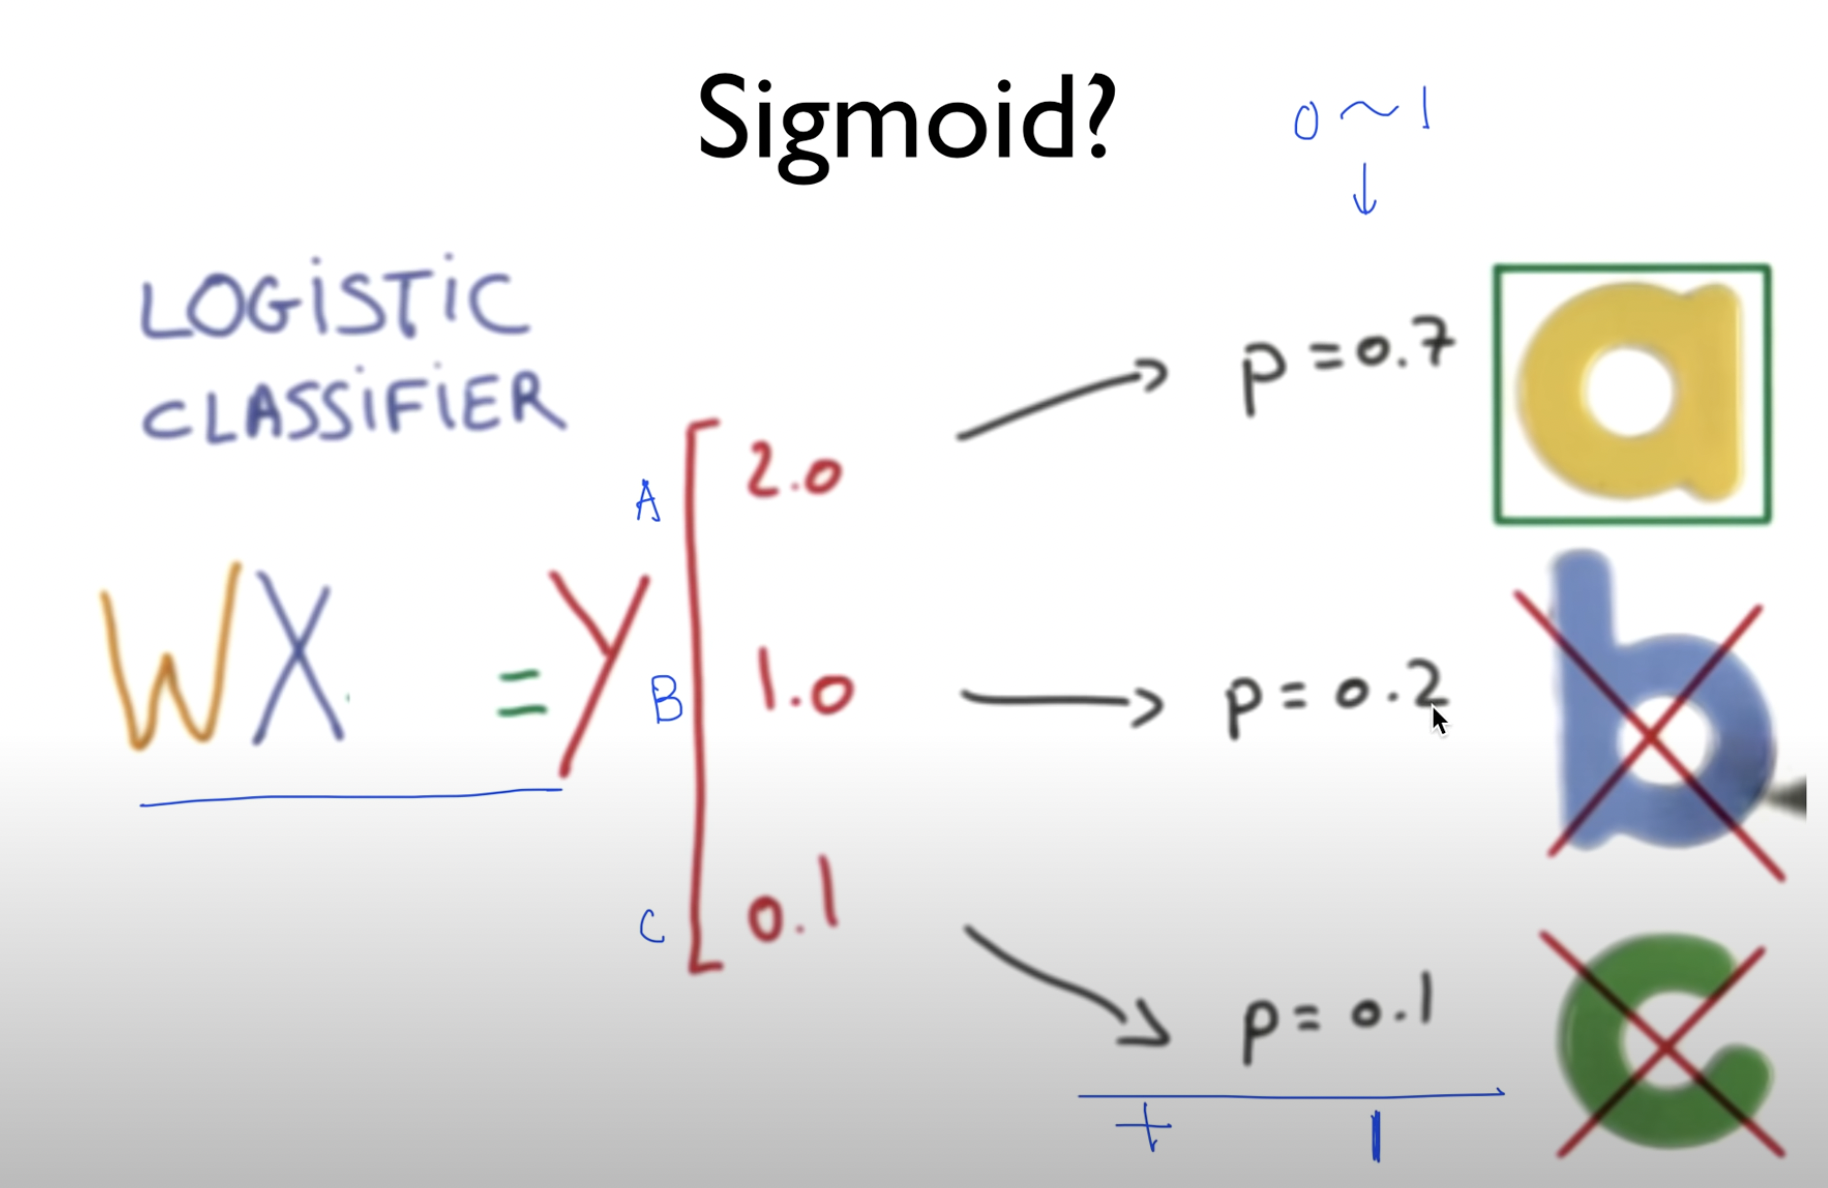 Sigmoid?
0 ~ 1
↓
LOGiSTiC
CLASSiFiER
WX = Y
A 2.0 → p = 0.7 a
B 1.0 → p = 0.2 b
C 0.1 → p = 0.1 c
+ 1